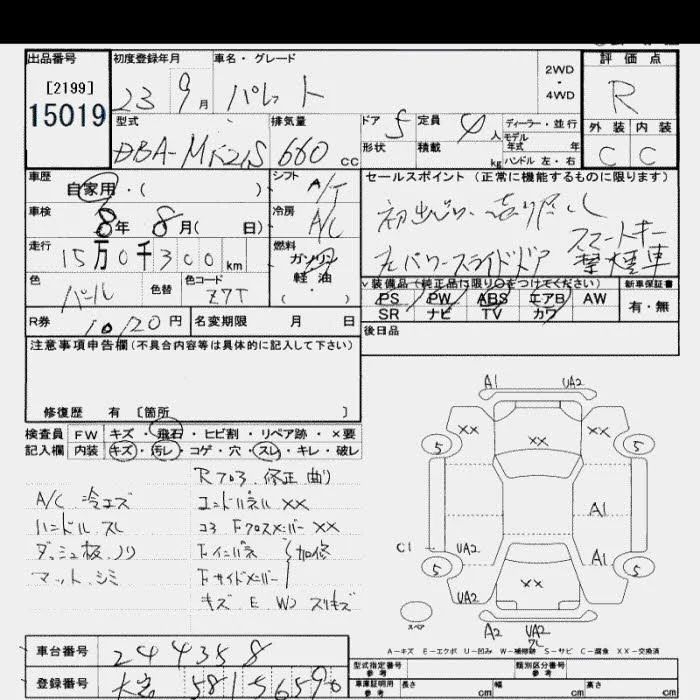 出品番号 初度登録年月 車名・グレード 評価点
[2199]
15019
23 9月 パレット
2WD
・
4WD
R
型式 排気量 ドア 5 定員 4人 ディーラー・並行
DBA-MK21S 660 cc
形状 積載 kg
モデル年式 年
ハンドル 左・右
外装 内装
C C
車歴 自家用・( )
シフト A/T
車検 8年 8月( 日)
冷房 A/C
走行 15万0千300km
燃料 ガソリン
軽油
色 パール 色替 色コード Z7T
R券 10120円 名変期限 月 日
セールスポイント (正常に機能するものに限ります)
スマートキー
パワースライドドア 禁煙車
∨装備品(純正品に限り○をつけてください) 新車保証書
PS PW ABS エアB AW 有・無
SR ナビ TV カワ
後日品
注意事項申告欄(不具合内容等は具体的に記入して下さい)
修復歴 有 〔箇所 〕
検査員 FW キズ・飛石・ヒビ割・リペア跡・×要
記入欄 内装 キズ・汚レ・コゲ・穴・スレ・キレ・破レ
修正 曲り
A/C 冷エズ
ハンドル スレ
ダッシュ板 ノリ
マット シミ
エンドパネル XX
コア Fクロスメンバー XX
Fインパネ
Fサイドメンバー 加修
キズ E W スリキズ
A1 UA2
XX XX XX
5 5
A1
C1 UA2 A1
5 5
UA2 XX
スペア A2 UA2
A-キズ E-エクボ U-凹み W-補修跡 S-サビ C-腐食 XX-交換済
車台番号 244358
登録番号
型式指定番号 参考 類別区分番号 参考
車庫証明用 参考 長さ cm 幅 cm 高さ cm